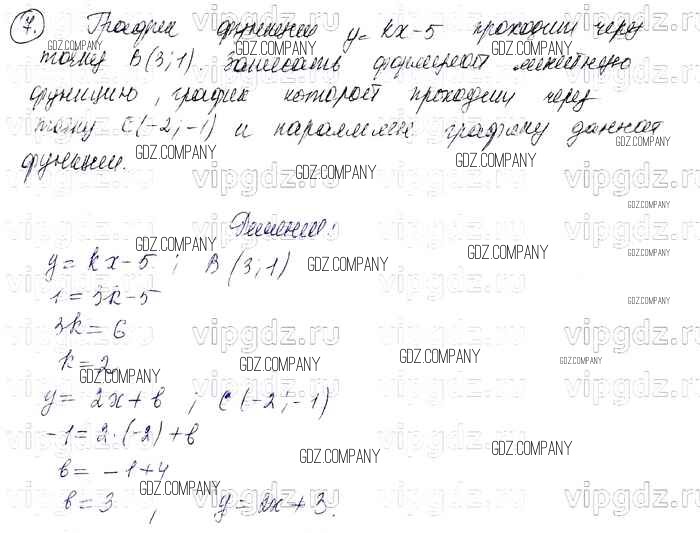 7. График функции y = kx - 5 проходит через
точку B(3; 1). Записать формулой линейную
функцию, график которой проходит через
точку C(-2; -1) и параллелен графику данной
функции.
Решение:
y = kx - 5 ; B (3; 1)
1 = 3k - 5
3k = 6
k = 2
y = 2x + b ; C (-2; -1)
-1 = 2·(-2) + b
b = -1 + 4
b = 3 , y = 2x + 3.
GDZ.COMPANY
vipgdz.ru